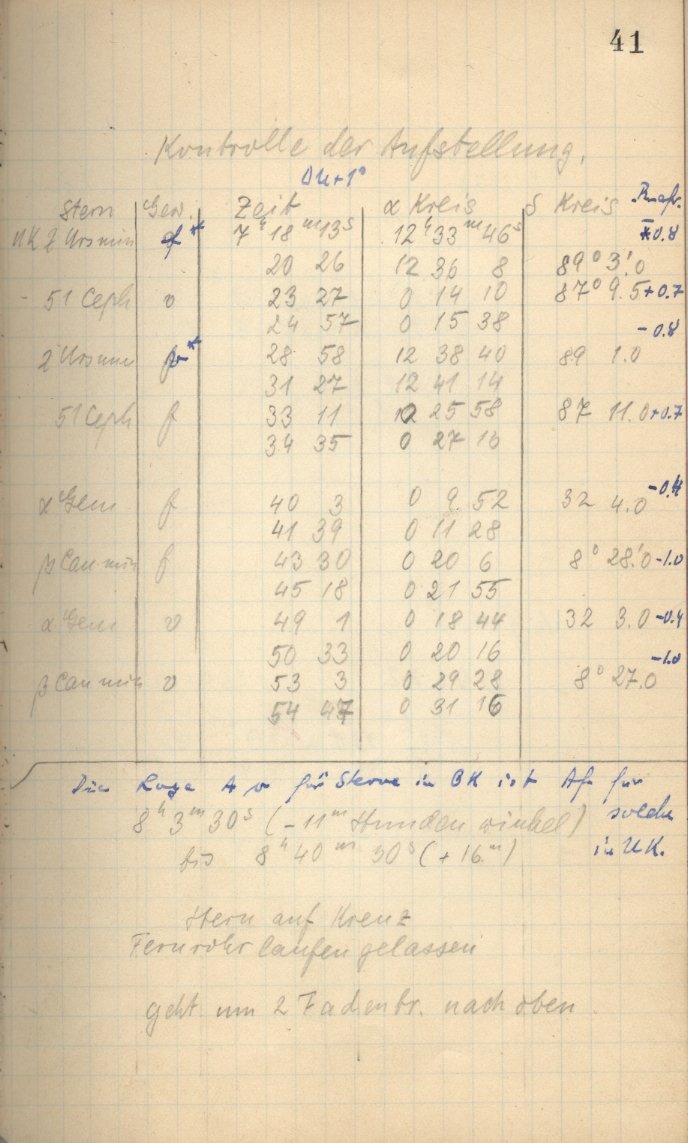 41
Kontrolle der Aufstellung.
ΔU+1°
Stern Gew. Zeit α Kreis δ Kreis Refr.
UK 2 Urs min f* 7h 18m 13s 12h 33m 46s -0.8
20 26 12 36 8 89° 3'.0
51 Ceph v 23 27 0 14 10 87° 9.5 +0.7
24 57 0 15 38 -0.8
2 Urs min v* 28 58 12 38 40 89 1.0
31 27 12 41 14
51 Ceph f 33 11 0 25 58 87 11.0 +0.7
34 35 0 27 16
α Gem f 40 3 0 9 52 32 4.0 -0.4
41 39 0 11 28
β Can min f 43 30 0 20 6 8° 28'.0 -1.0
45 18 0 21 55
α Gem v 49 1 0 18 44 32 3.0 -0.4
50 33 0 20 16 -1.0
β Can min v 53 3 0 29 28 8° 27.0
54 47 0 31 16
Die Lage A v für Sterne in OK ist Af für
8h 3m 30s (-11m Stundenwinkel) solche
bis 8h 40m 30s (+16m) in UK.
Stern auf Kreuz
Fernrohr laufen gelassen
geht um 2 Fadenbr. nach oben